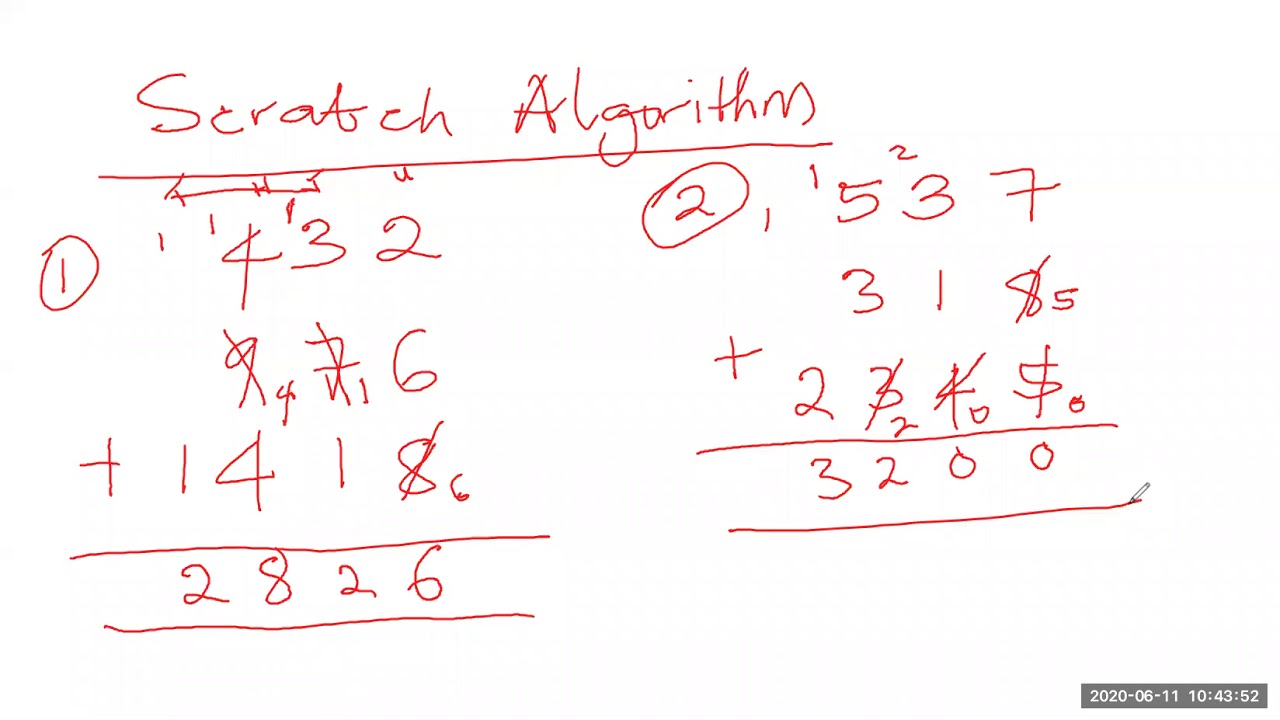 Scratch Algorithm
1 1 1
① 4 3 2
9 4 7 1 6
+ 1 4 1 8 6
2 8 2 6
1 1 2
② 5 3 7
3 1 8 5
+ 2 3 2 4 0 5 0
3 2 0 0
2020-06-11 10:43:52